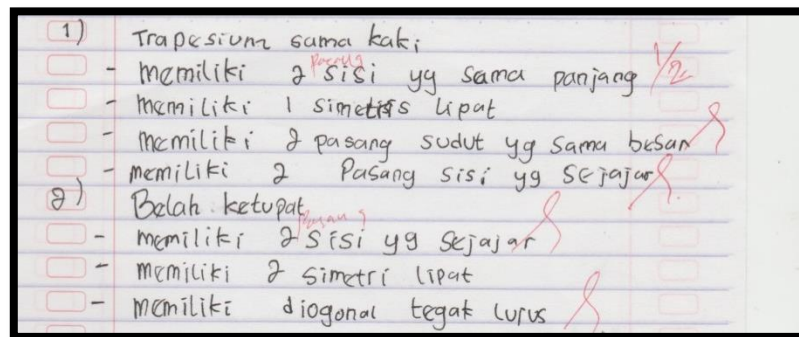 1) Trapesium sama kaki
- memiliki 2 pasang sisi yg sama panjang 1/2
- memiliki 1 simetris lipat
- memiliki 2 pasang sudut yg sama besar
- memiliki 2 Pasang sisi yg sejajar
2) Belah ketupat
- memiliki 2 pasang sisi yg sejajar
- memiliki 2 simetri lipat
- memiliki diogonal tegak lurus